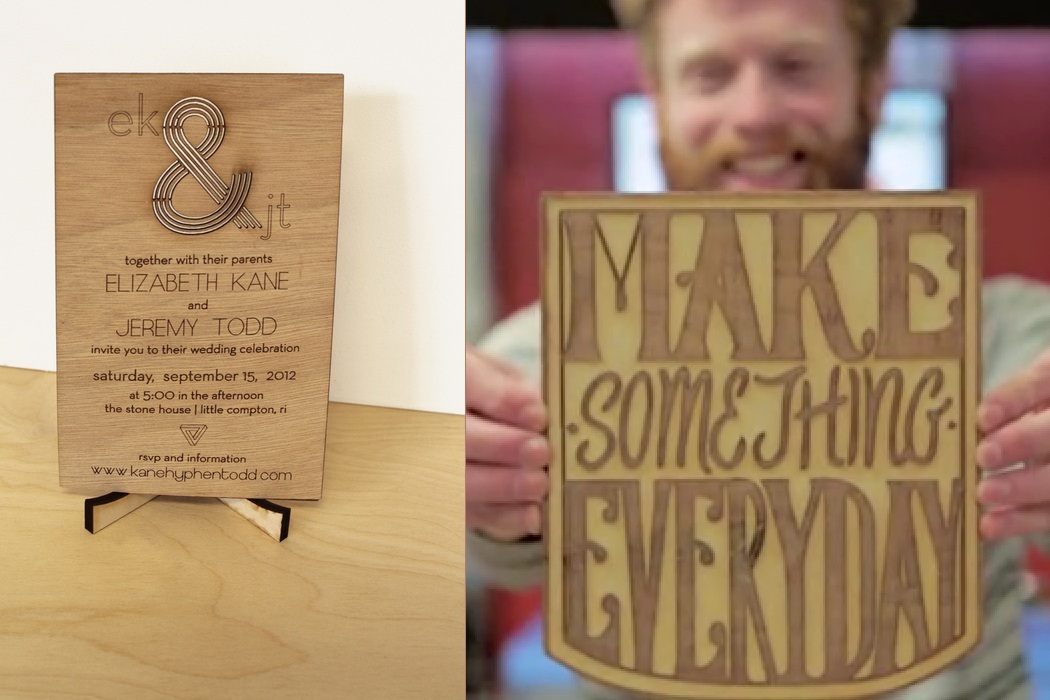 ek
&
jt
together with their parents
ELIZABETH KANE
and
JEREMY TODD
invite you to their wedding celebration
saturday, september 15, 2012
at 5:00 in the afternoon
the stone house | little compton, ri
rsvp and information
www.kanehyphentodd.com
MAKE
·SOMETHING·
EVERYDAY